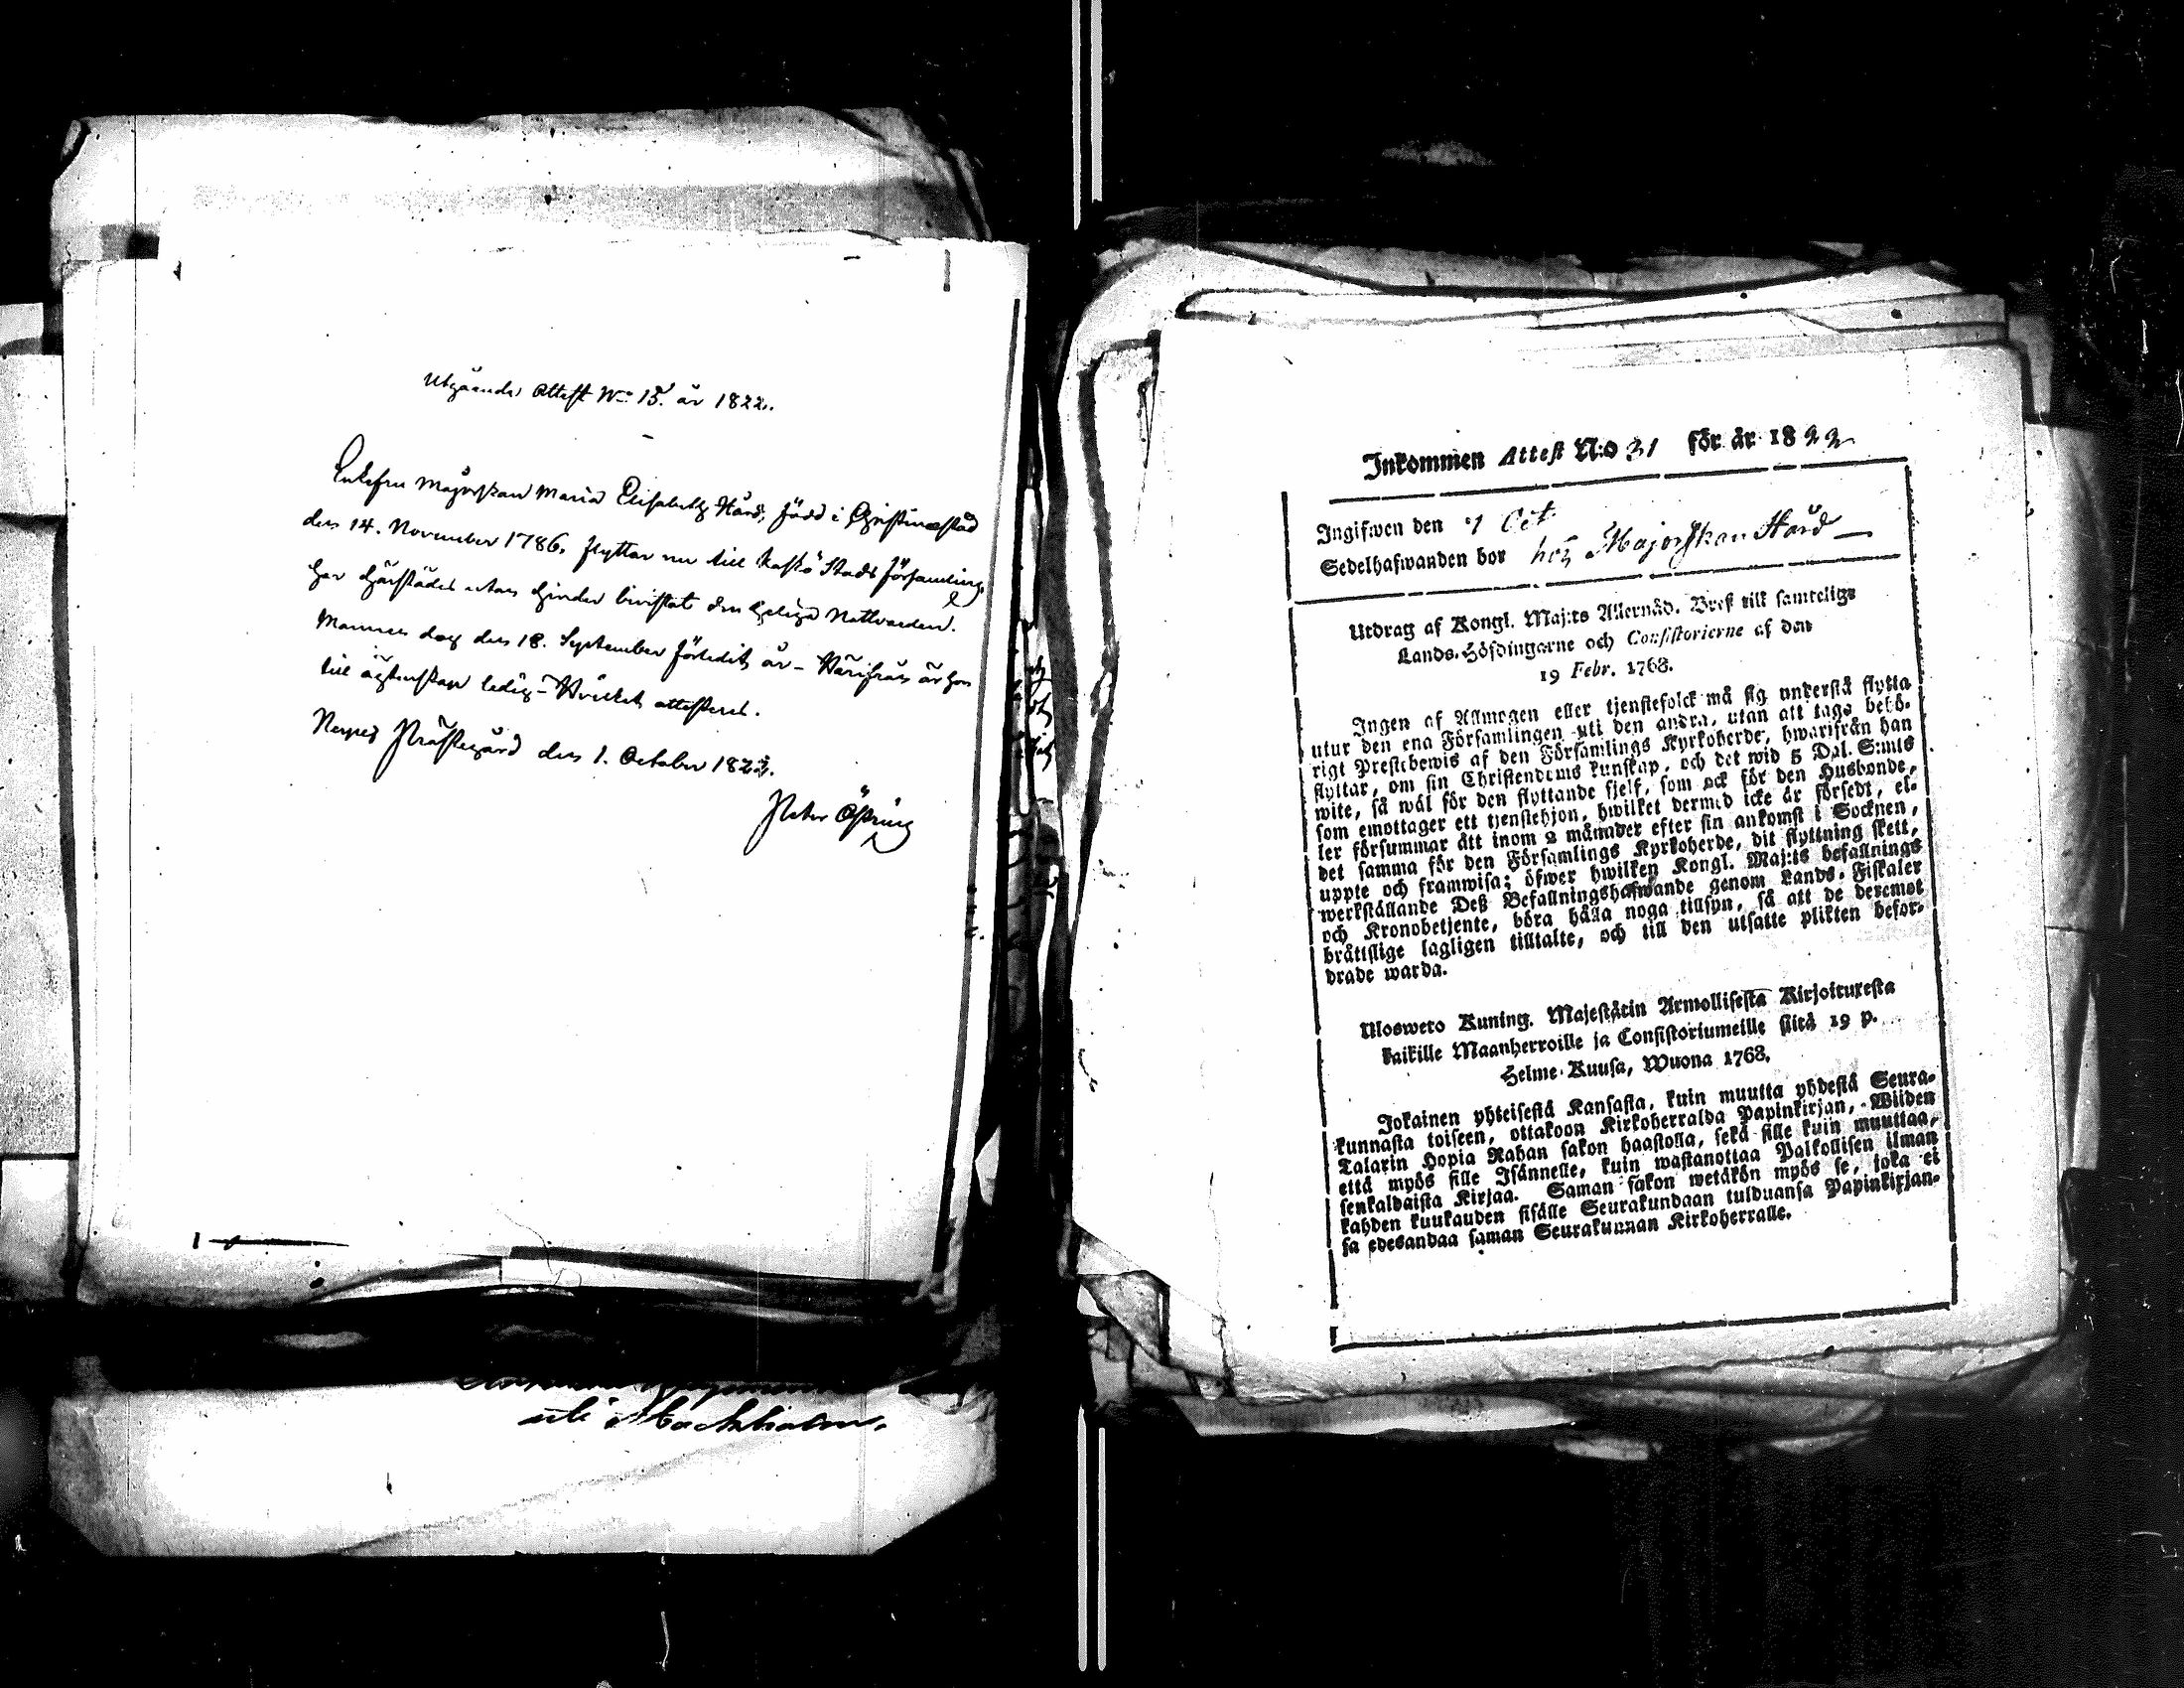 Utgående Attest No 15. år 1822.
Enkefru Majorskan Maria Elisabeth Hård, född i Christinæstad
den 14. November 1786. flyttar nu till Kaskö Stads församling,
har härstädes utan hinder bivistat den heliga Nattvarden.
den 18. September förledit år – Härifrån är hon
till ägtenskap ledig – Hvilket attesteras.
Nerpes Prästegård den 1. October 1822.
Peter
uti Stockholm.
Inkommen Attest N:o 31 för år 1822
Ingifwen den 1 Oct
Sedelhafwanden bor hos Majorskan Hård
Utdrag af Kongl. Maj:ts Allernåd. Bref till samtelige
Lands-Höfdingarne och Consistorierne af den
19 Febr. 1768.
Ingen af Allmogen eller tjenstefolck må sig understå flytta
utur den ena Församlingen uti den andra, utan att taga behö-
rigt Prestebewis af den Församlings Kyrkoherde, hwarifrån han
flyttar, om sin Christendoms kunskap, och det wid 5 Dal. S:mts
wite, så wäl för den flyttande sjelf, som ock för den Husbonde,
som emottager ett tjenstehjon, hwilket dermed icke är försedt, el-
ler försummar att inom 2 månader efter sin ankomst i Socknen,
det samma för den Församlings Kyrkoherde, dit flyttning skett,
uppte och framwisa; öfwer hwilken Kongl. Maj:ts befallnings
werkställande Deß Befallningshafwande genom Lands-Fiskaler
och Kronobetjente, böra hålla noga tillsyn, så att de deremot
bråttslige lagligen tilltalte, och till den utsatte plikten befor-
drade warda.
Ulosweto Kuning. Majestätin Armollisesta Kirjoituxesta
kaikille Maanherroille ja Consistoriumeille siitä 19 p.
Helme-Kuusa, Wuona 1768.
Jokainen yhteisestä Kansasta, kuin muutta yhdestä Seura-
kunnasta toiseen, ottakoon Kirkoherralda Papinkirjan, Wiiden
Talarin Hopia Rahan sakon haastolla, sekä sille kuin muuttaa,
että myös sille Isännelle, kuin wastanottaa Palkollisen ilman
senkaldaista Kirjaa. Saman sakon wetäkön myös se, joka ei
kahden kuukauden sisälle Seurakundaan tulduansa Papinkirjan-
sa edesandaa saman Seurakunnan Kirkoherralle.